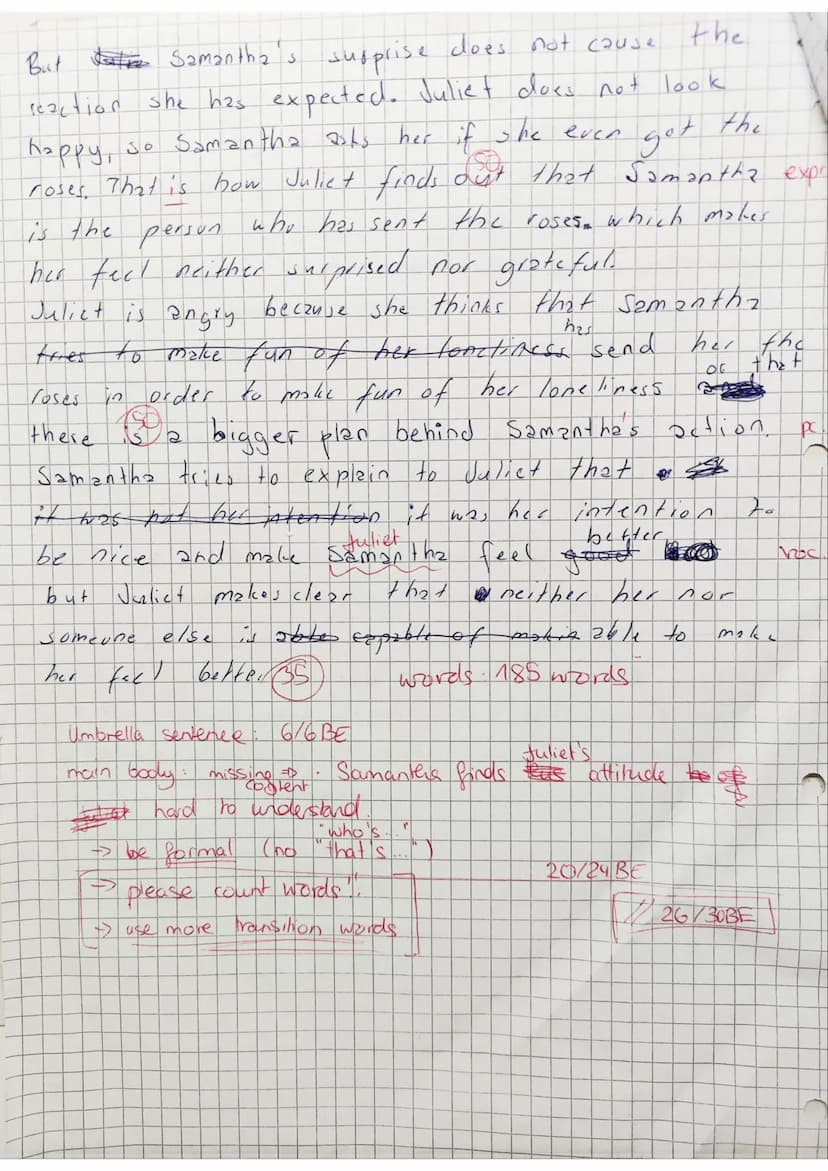 But Samantha's surprise does not cause the
reaction she has expected. Juliet does not look
happy, so Samantha asks her if she even got the
50
roses. That is how Juliet finds out that Samantha expr
is the person who has sent the roses. which makes
her feel neither surprised nor grateful.
Juliet is angry because she thinks that Samantha
has
tries to make fun of her loneliness send her the
or that
roses in order to make fun of her loneliness
50
there is a bigger plan behind Samantha's action. pc
Samantha tries to explain to Juliet that
it was not her intention it was her intention to
Juliet better
be nice and make Samantha feel good voc.
but Juliet makes clear that neither her nor
someone else is able capable of making able to make
her feel better 35 words: 185 words
Umbrella sentence: 6/6BE
Juliet's
main body: missing => Samantha finds attitude
content
hard to understand.
"who's..."
-> be formal (no "that's...")
20/24BE
-> please count words!!
// 26/30BE
-> use more transition words